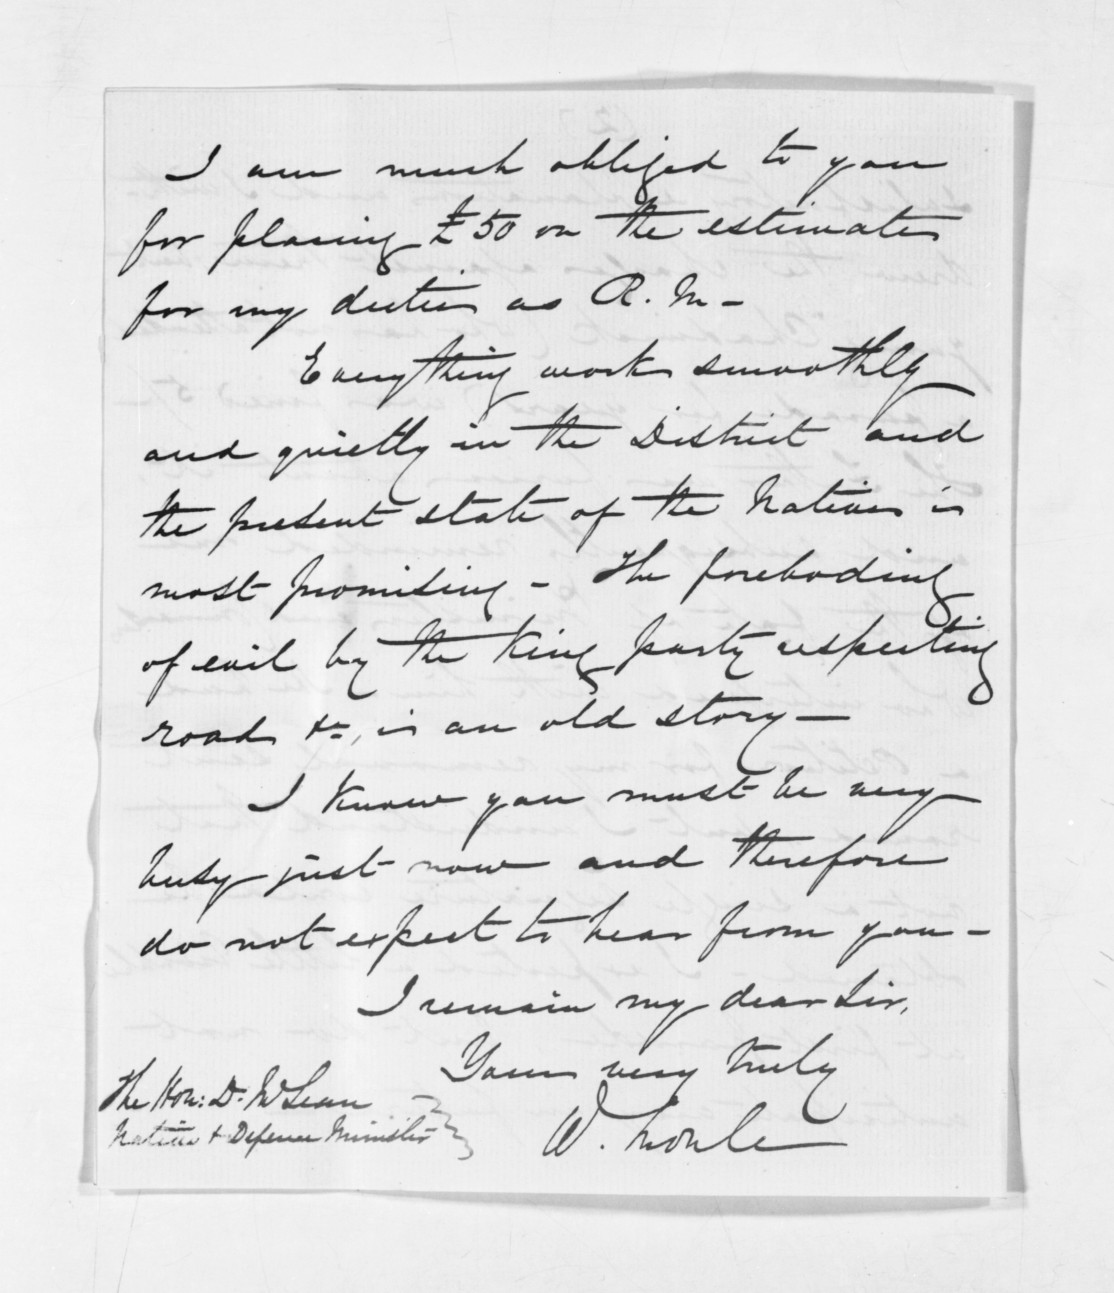 I am much obliged to you
for placing £50 on the estimates
for my duties as R.M. –
Everything works smoothly
and quietly in the District and
the present state of the Natives is
most promising – The foreboding
of evil by the King party respecting
roads &c, is an old story –
I know you must be very
busy just now and therefore
do not expect to hear from you –
I remain my dear Sir,
Yours very truly
W.
The Hon: D. McLean
Native & Defence Minister